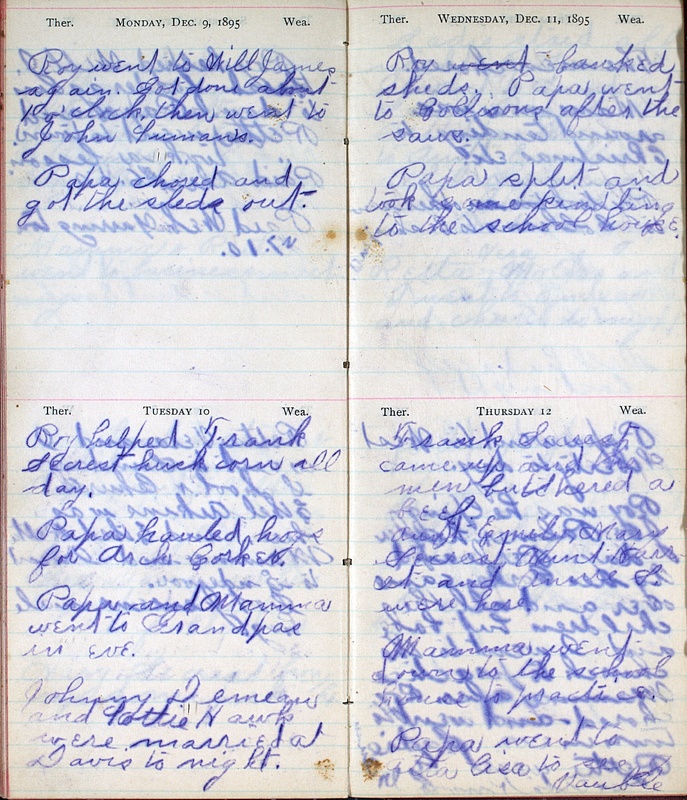 Ther. MONDAY, DEC. 9, 1895 Wea.
Roy went to Will James
again. Got done about
10 o'clock then went to
John Inman's.
Papa chored and
got the sleds out.
Ther. TUESDAY 10 Wea.
Roy helped Frank
Secrest husk corn all
day.
Papa hauled hogs
for Arch
Papa and Mamma
went to Grandpas
in eve.
Johnny
and Lottie Hawk
were married at
Davis to night.
Ther. WEDNESDAY, DEC. 11, 1895 Wea.
Roy went banked
sheds. Papa went
to after the
saws.
Papa split and
took some kindling
to the school house.
Ther. THURSDAY 12 Wea.
Frank Secrest
came up and the
men butchered a
beef.
Aunt Emily, Mary
Secrest, Aunt
and Anna S
were here.
Mamma went
down to the school
house to practice.
Papa went to
to see